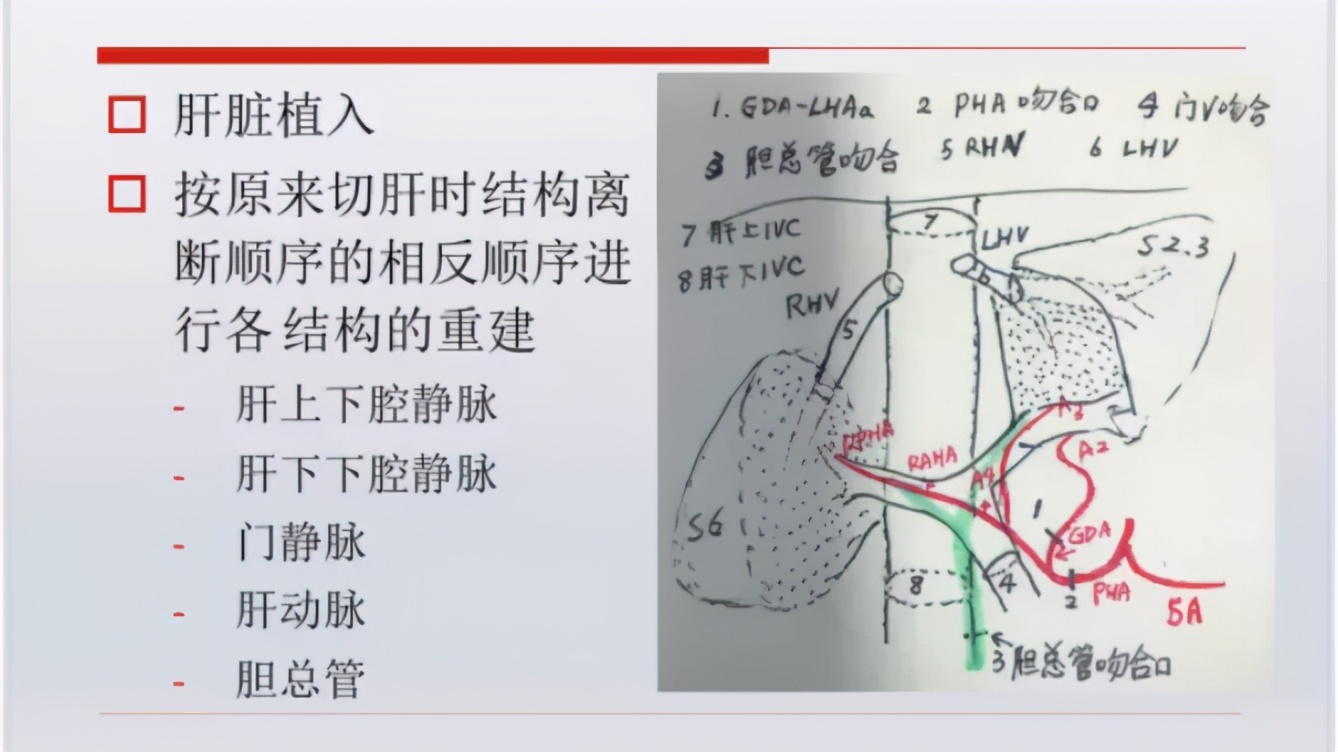 肝脏植入
按原来切肝时结构离
断顺序的相反顺序进
行各结构的重建
- 肝上下腔静脉
- 肝下下腔静脉
- 门静脉
- 肝动脉
- 胆总管
1. GDA-LHAa 2 PHA吻合口 4 门V吻合
3 胆总管吻合 5 RHV 6 LHV
7 肝上IVC
8 肝下IVC
7
LHV
S2.3
RHV
6
5
A3
RAHA
A2
A4
S6
1
GDA
8
4
2
PHA
SA
3 胆总管吻合口